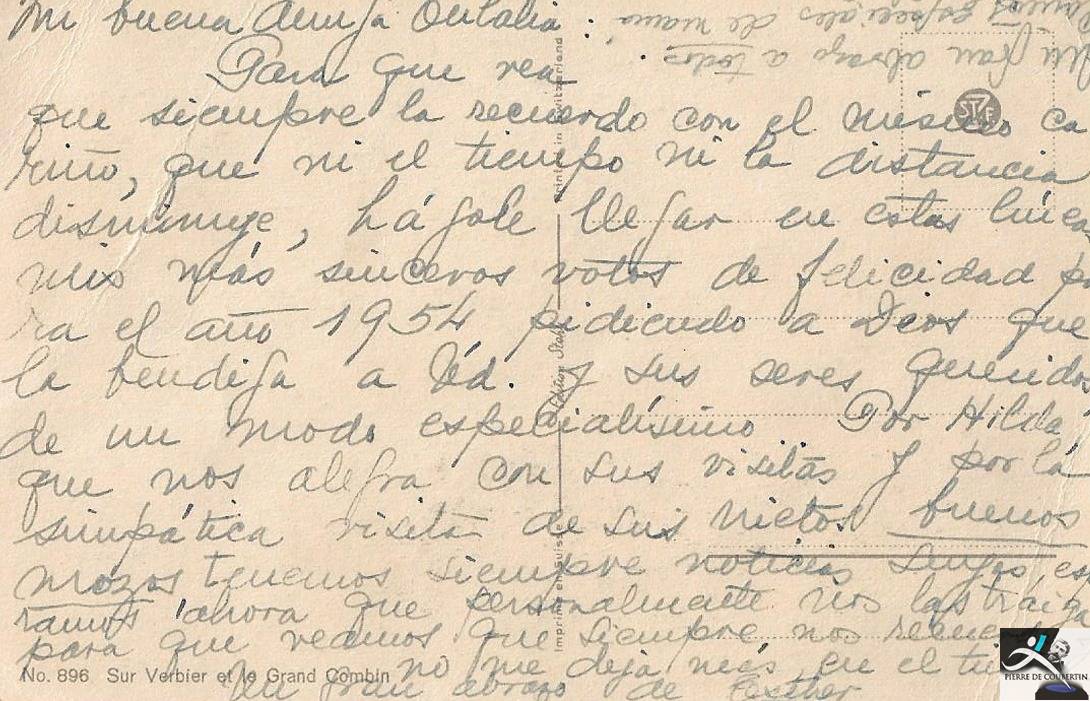 Mi buena Amiga Eulalia:
Para que vea
que siempre la recuerdo con el mismo ca
riño, que ni el tiempo ni la distancia
disminuye, hágole llegar en estas línea
mis más sinceros votos de felicidad p
ra el año 1954 pidiendo a Dios que
la bendiga a Ud. y sus seres queridos
de un modo especialísimo Por Hilda
que nos alegra con sus visitas y por la
simpática visita de sus nietos buenos
mozos tenemos siempre noticias suyas, es
ramos ahora que personalmente nos las traiga
para que veamos que siempre nos
no me deja más en el
Un gran abrazo de Esther
Un gran abrazo a todos
especiales de mamá
Printed in Switzerland
Edition Stehli
Imprimé en Suisse
No. 896 Sur Verbier et le Grand Combin
PIERRE DE COUBERTIN